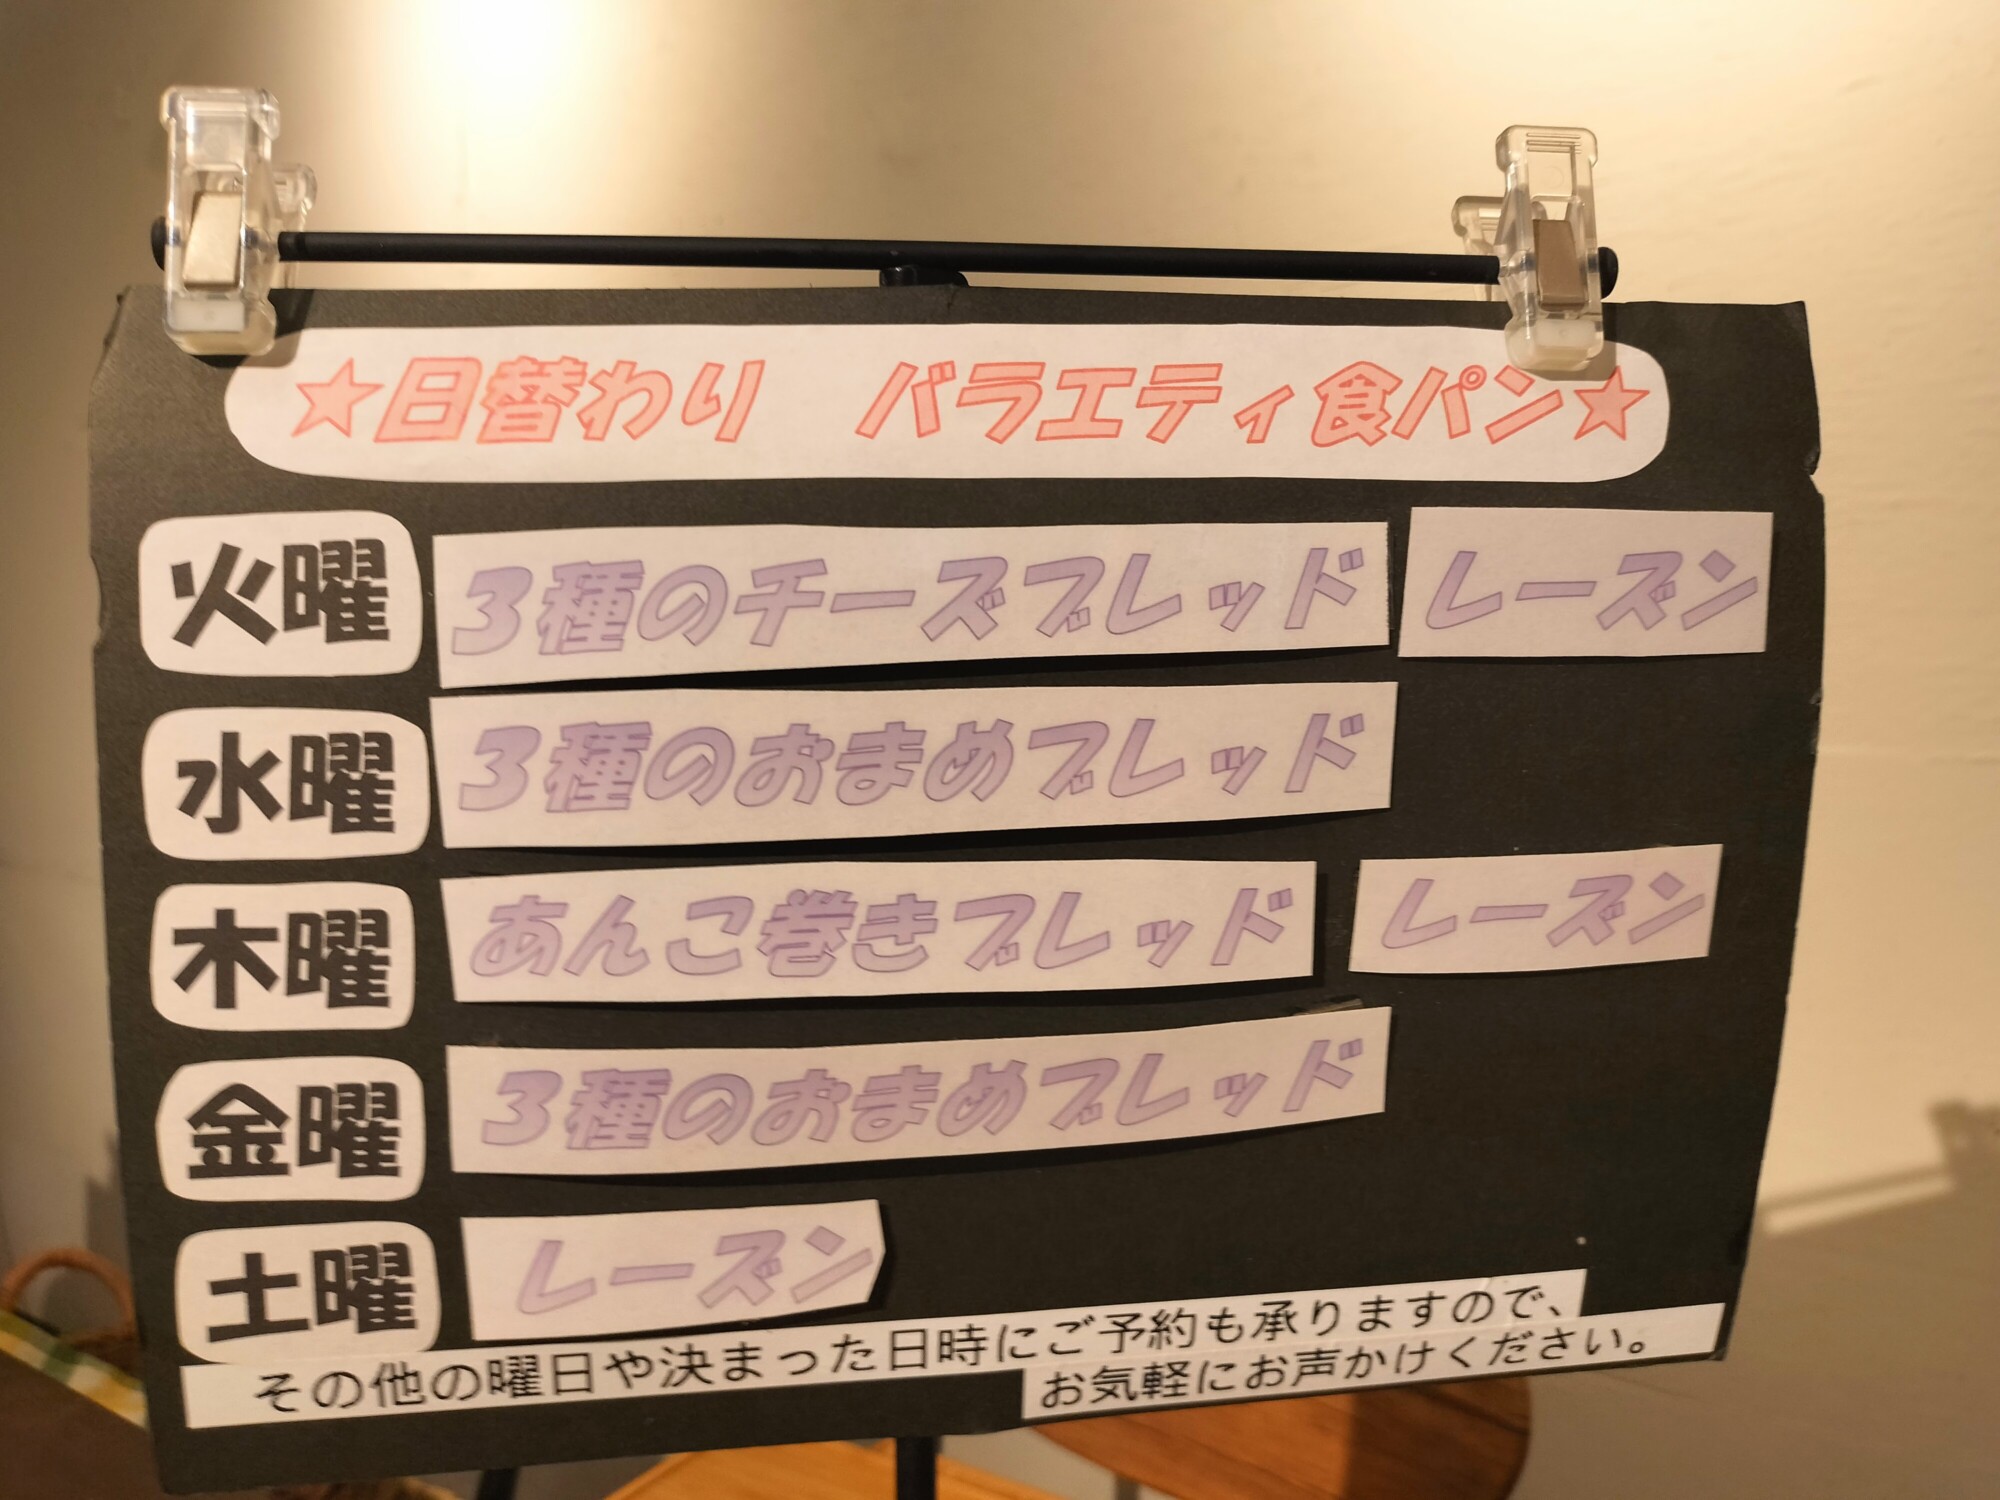 ★日替わり　バラエティ食パン★
火曜 3種のチーズブレッド レーズン
水曜 3種のおまめブレッド
木曜 あんこ巻きブレッド レーズン
金曜 3種のおまめブレッド
土曜 レーズン
その他の曜日や決まった日時にご予約も承りますので、
お気軽にお声かけください。